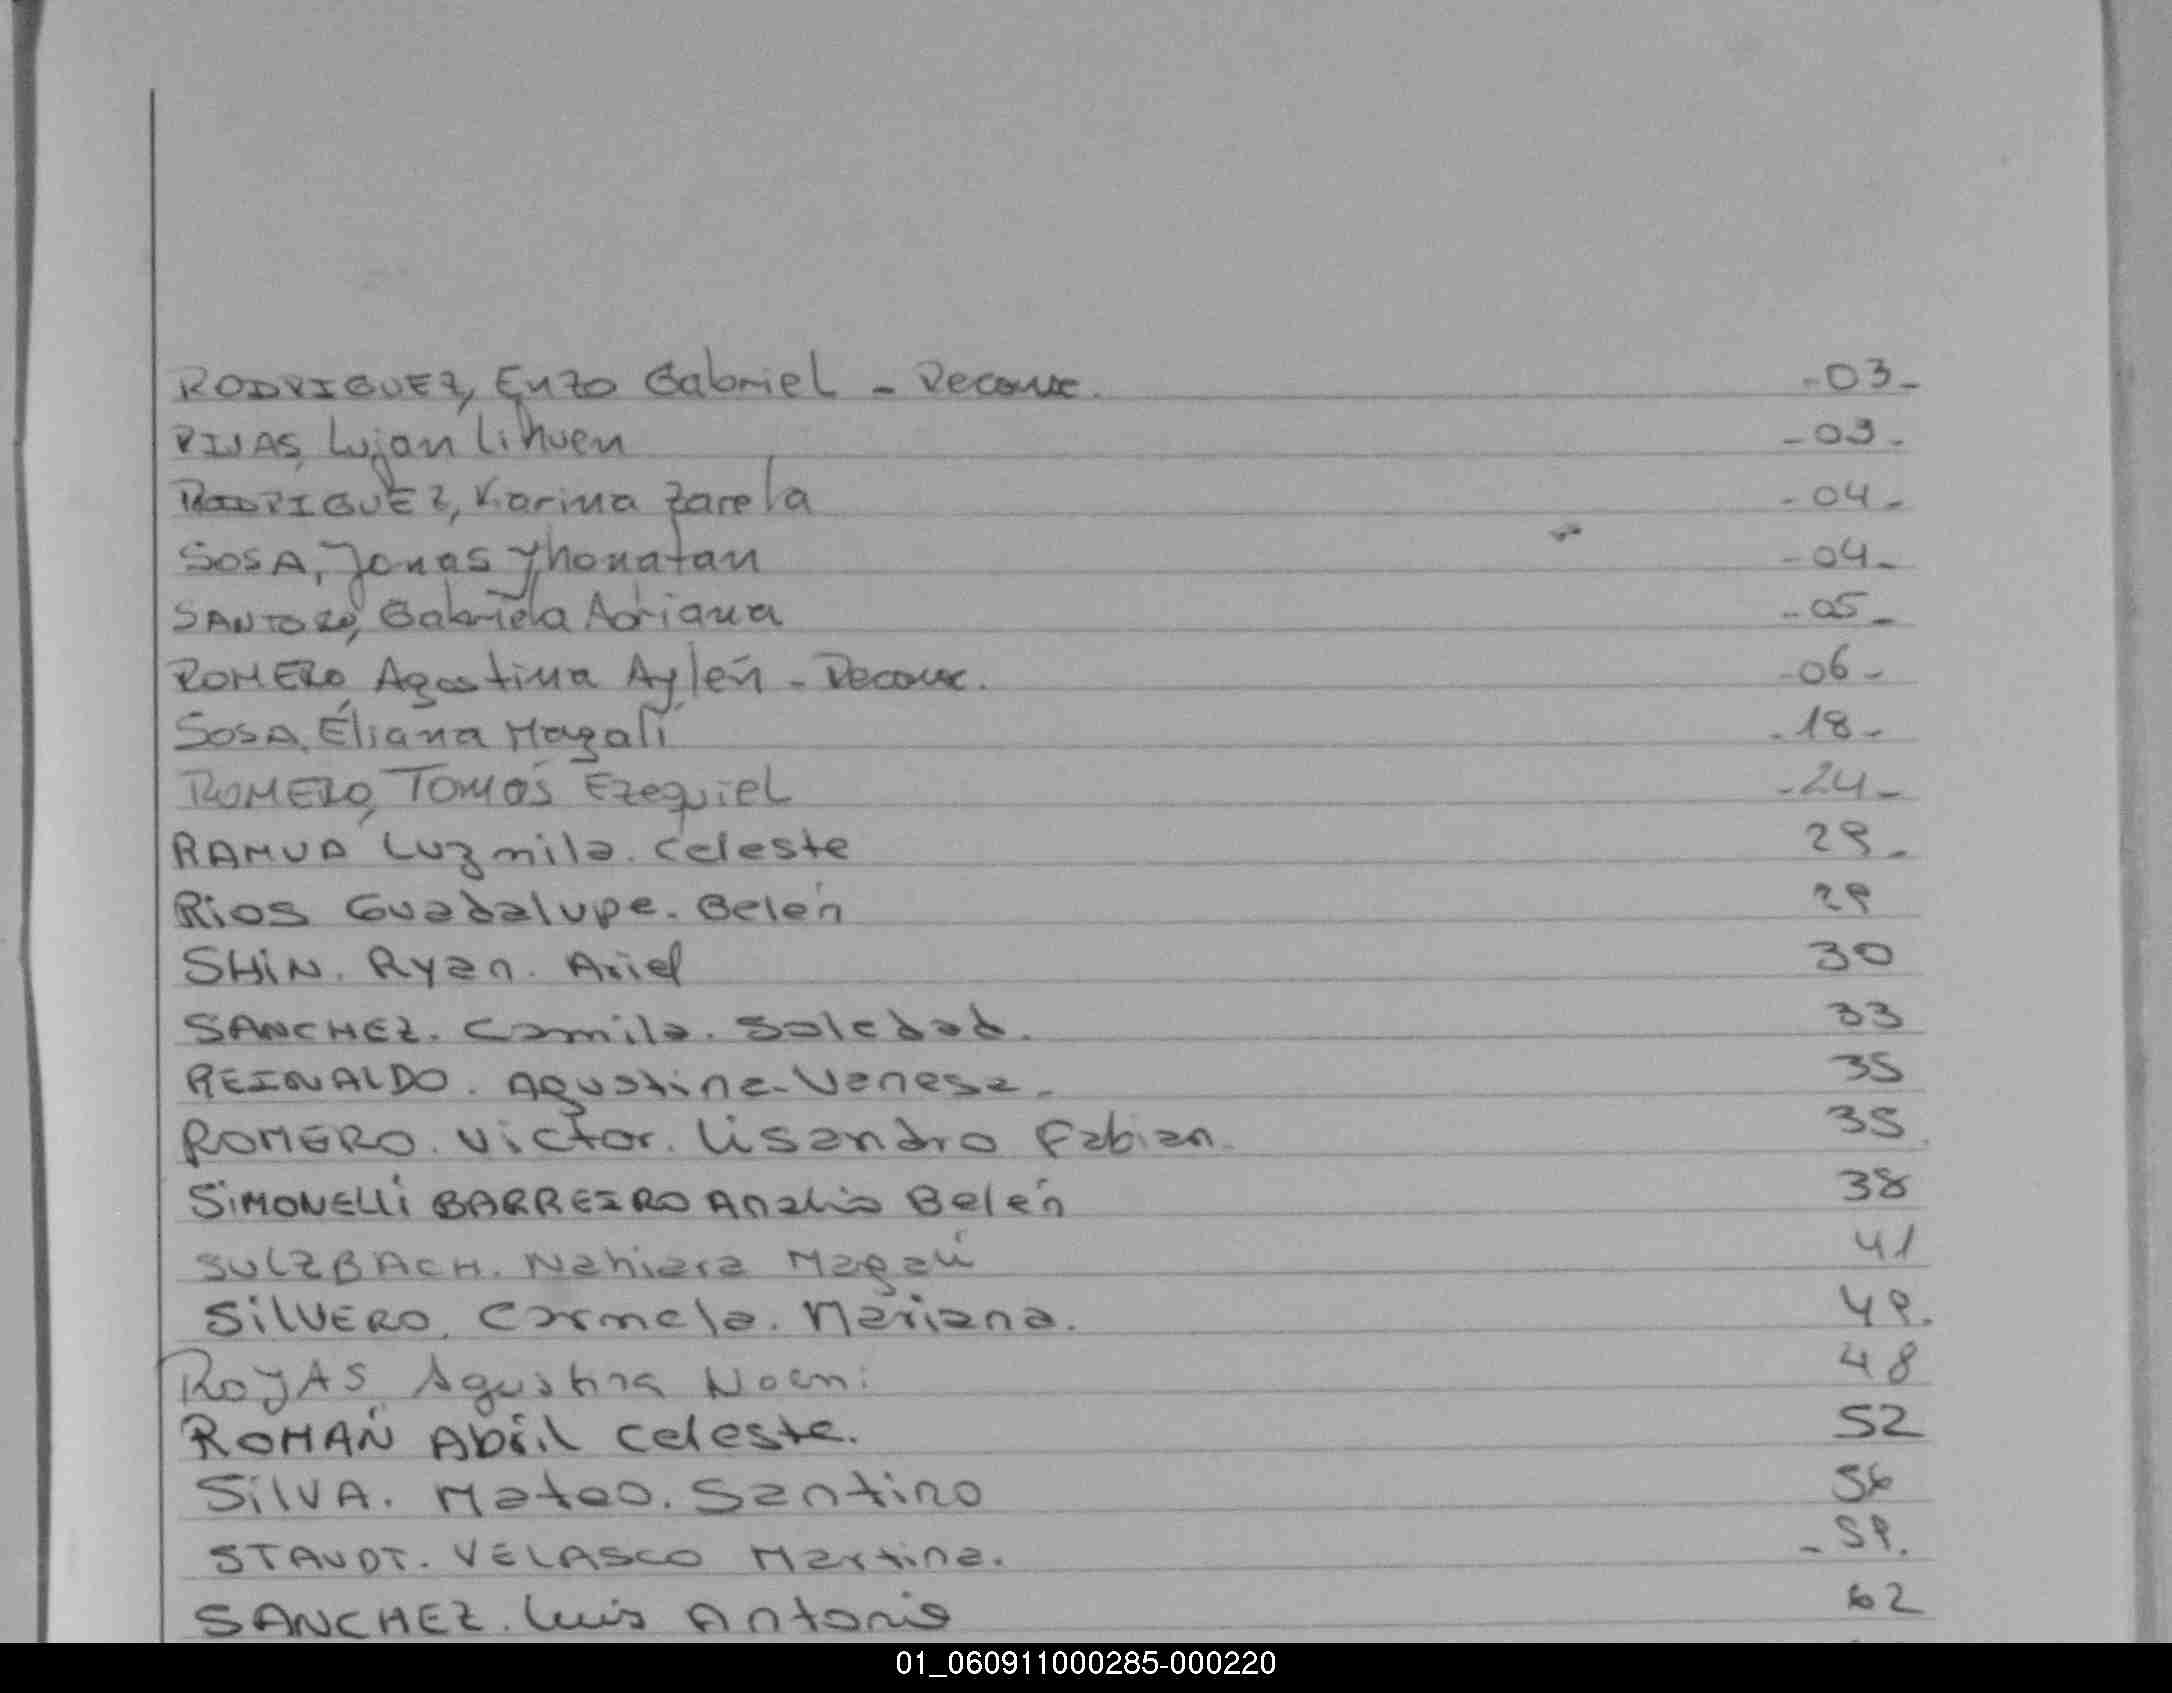 RODRIGUEZ, Enzo Gabriel - Reconoc. -03-
RIVAS, Lujan Lihuen -03-
RODRIGUEZ, Karina Zarela -04-
SOSA, Jonas Jhonatan -04-
SANTORO, Gabriela Adriana -05-
ROMERO, Agostina Aylén - Reconoc. -06-
SOSA, Eliana Magalí -18-
ROMERO, Tomás Ezequiel -24-
RAMUA Luzmila. Celeste 29-
Rios Guadalupe. Belén 29
SHiN. Ryan. Ariel 30
SANCHEZ. Camila. Soledad. 33
REINALDO. Agustina-Vanesa. 35
ROMERO. Victor. Lisandro Fabian. 35
SiMONELLi BARREIRO Analia Belén 38
SULZBACH. Nahiara Magalí 41
SiLVERO. Carmela. Mariana. 49.
ROJAS Agustina Noemi 48
ROMAN Abril Celeste. 52
SilVA. Mateo. Santino 56
STAUDT. VELASCO Martina. -59.
SANCHEZ. Luis Antonio 62
01_060911000285-000220